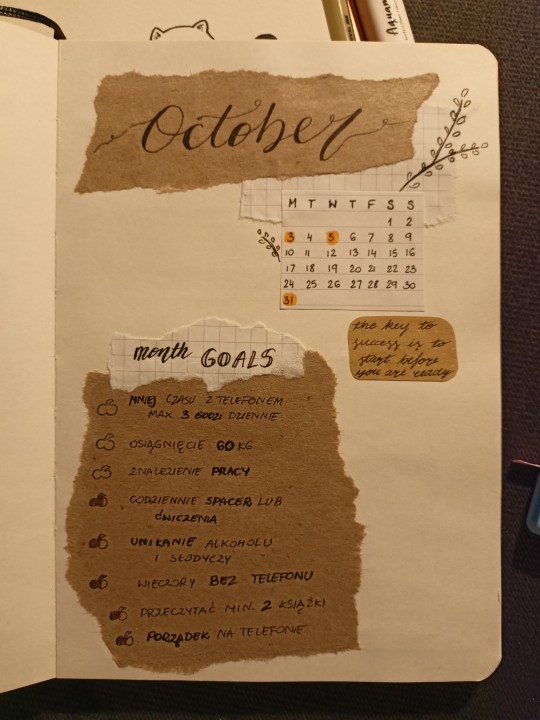 October
M T W T F S S
1 2
3 4 5 6 7 8 9
10 11 12 13 14 15 16
17 18 19 20 21 22 23
24 25 26 27 28 29 30
31
the key to
success is to
start before
you are ready
month GOALS
MNIEJ CZASU Z TELEFONEM
MAX 3 GODZ DZIENNIE
OSIĄGNIĘCIE 60 KG
ZNALEZIENIE PRACY
CODZIENNIE SPACER LUB
ĆWICZENIA
UNIKANIE ALKOHOLU
I SŁODYCZY
WIECZORY BEZ TELEFONU
PRZECZYTAĆ MIN. 2 KSIĄŻKI
PORZĄDEK NA TELEFONIE